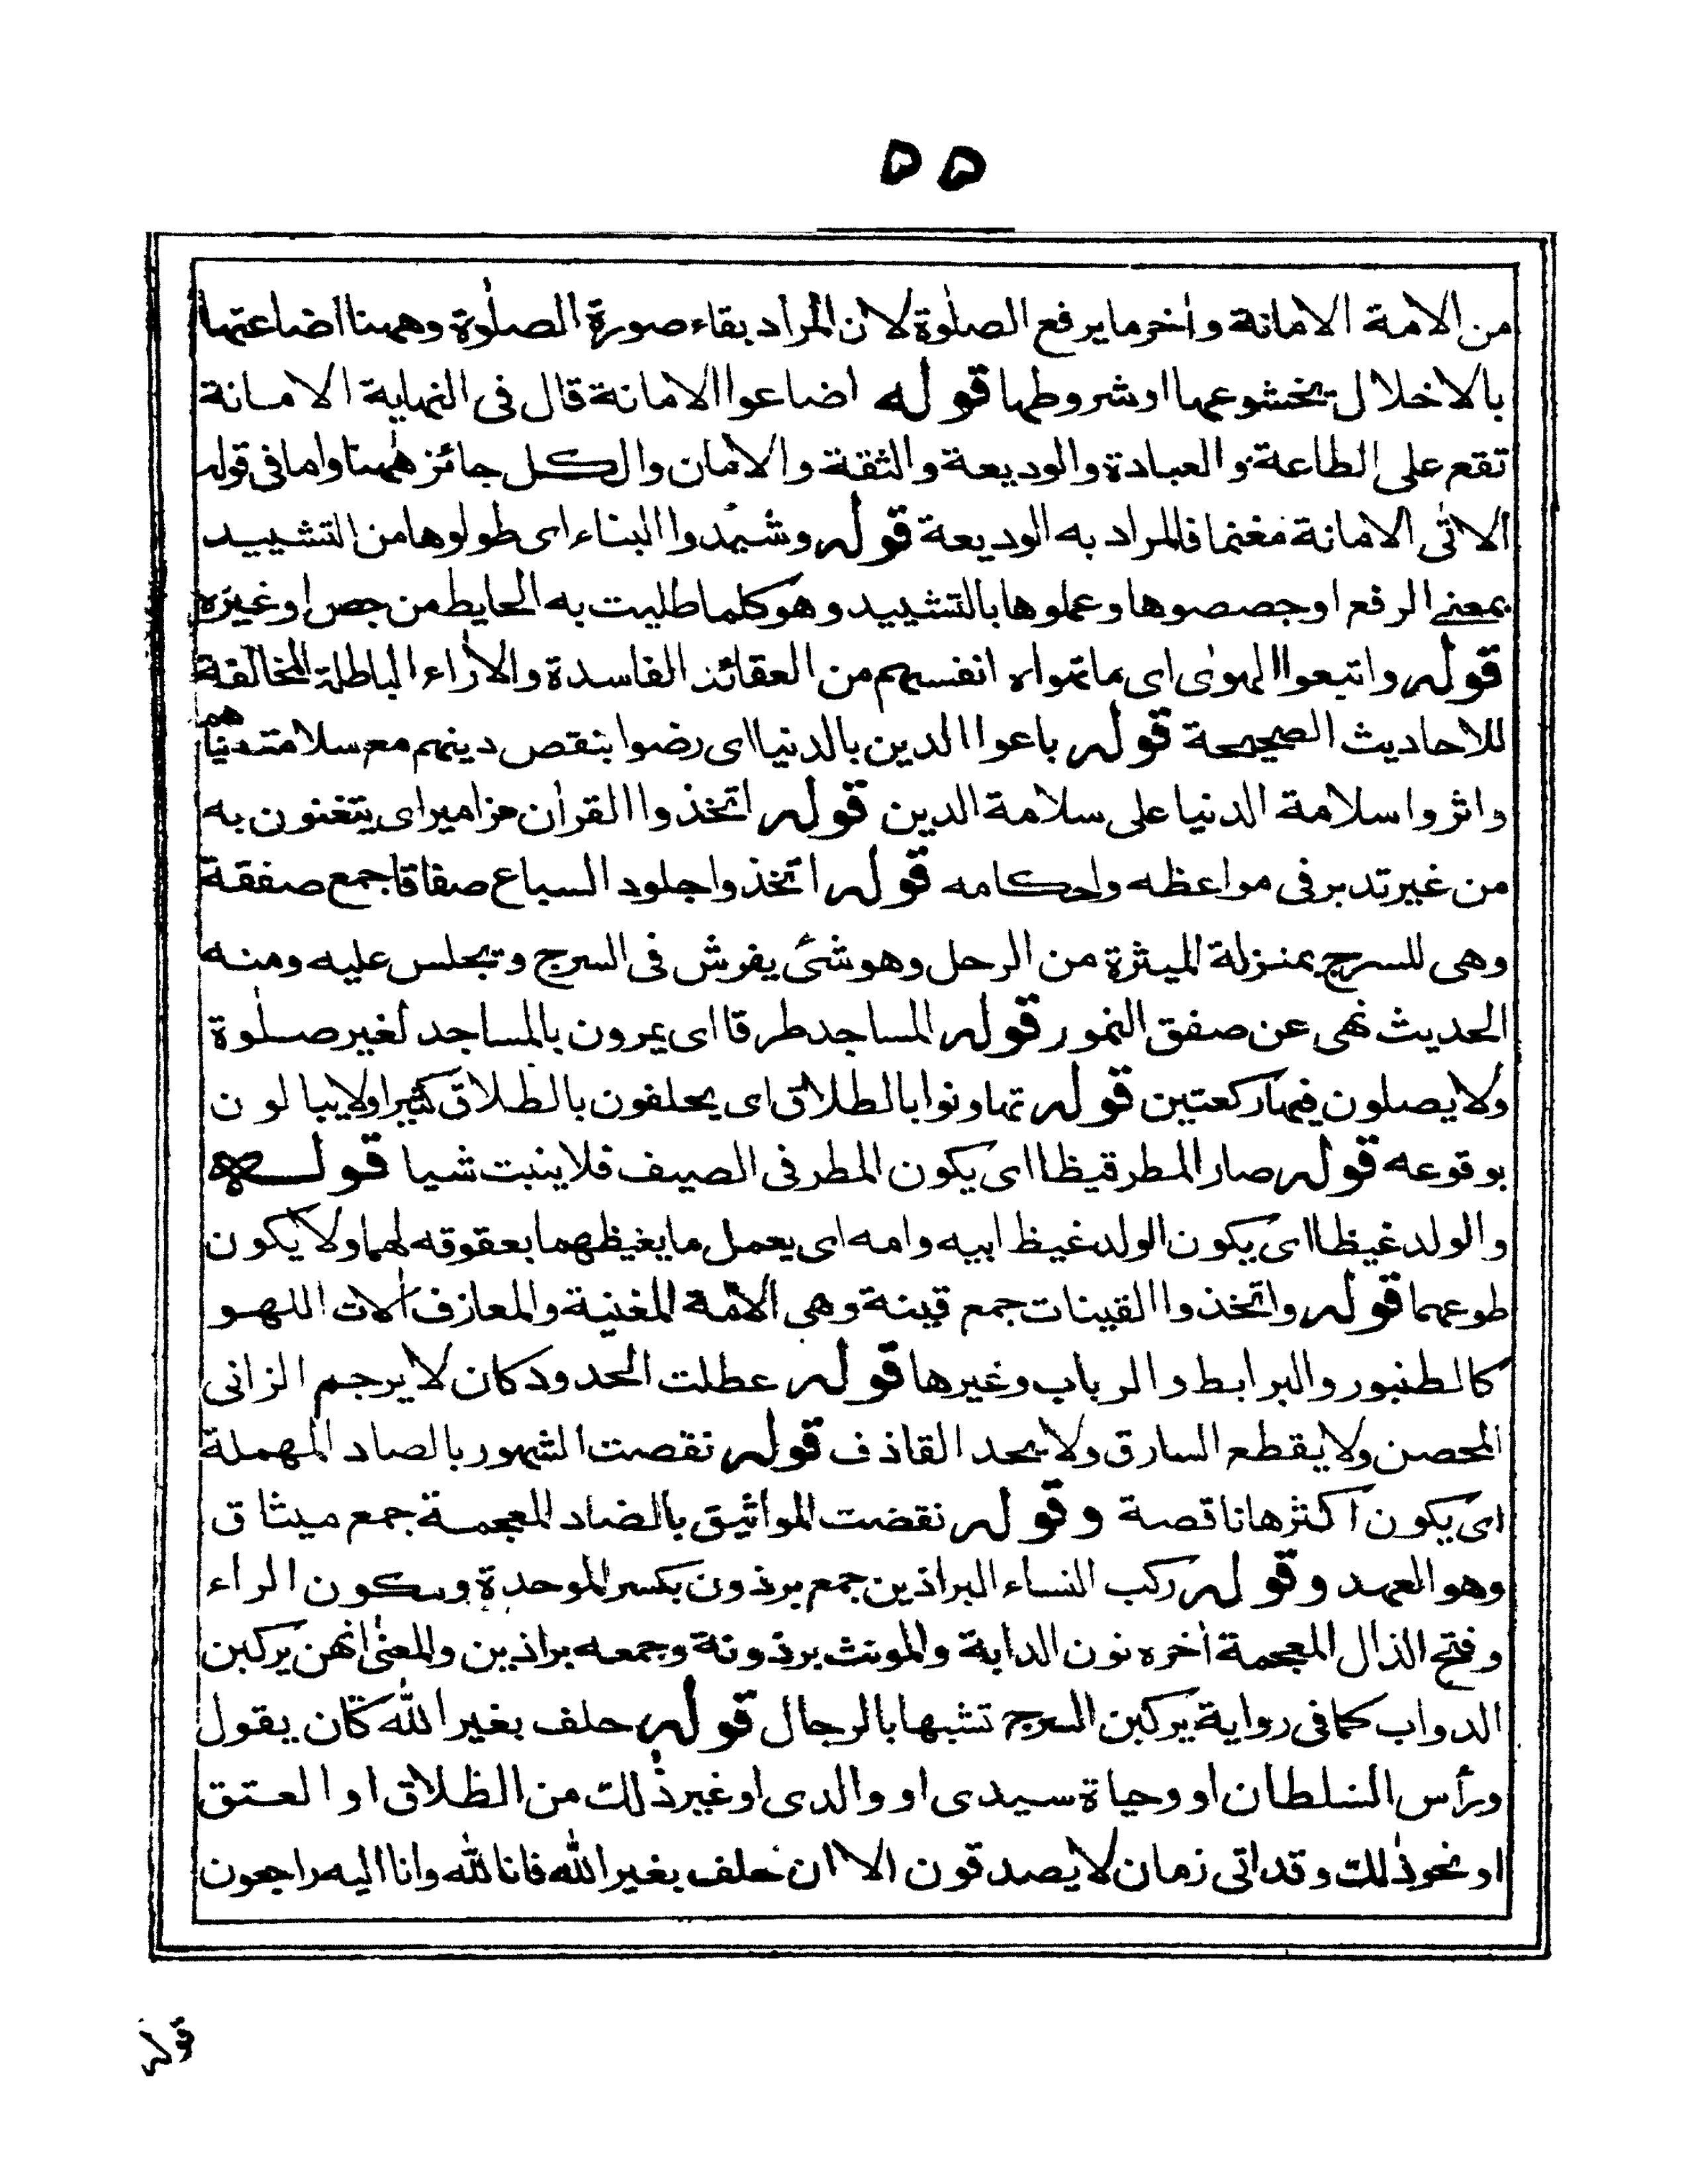 ۵۵
من الامة الامانة واٰخر ما يرفع الصلٰوة لان المراد بقاء صورة الصلٰوة وههنا اضاعتها
بالاخلال بخشوعها او شروطها قوله اضاعوا الامانة قال فى النهاية الامانة
تقع على الطاعة والعبادة والوديعة والثقة والامان والكل جائز هٰهنا واما فى قوله
الاتى الامانة مغنما فالمراد به الوديعة قوله وشيدوا البناء اى طولوها من التشييد
بمعنى الرفع او جصصوها وعملوها بالتشييد وهو كلما طليت به الحايط من جص او غيره
قوله واتبعوا الهوٰى اى ماتهواه انفسهم من العقائد الفاسدة والاٰراء الباطلة المخالفة
للاحاديث الصحيحة قوله باعوا الدين بالدنيا اى رضوا بنقص دينهم مع سلامة دنياهم
واثروا سلامة الدنيا على سلامة الدين قوله اتخذوا القراٰن مزامير اى يتغنون به
من غير تدبر فى مواعظه واحكامه قوله اتخذوا جلود السباع صفاقا جمع صفقة
وهى للسرج بمنزلة الميثرة من الرحل وهو شئ يفرش فى السرج وتجلس عليه ومنه
الحديث نهى عن صفق النمور قوله المساجد طرقا اى يمرون بالمساجد لغير صلٰوة
ولا يصلون فيها ركعتين قوله تهاونوا بالطلاق اى يحلفون بالطلاق كثيرا ولا يبالون
بوقوعه قوله صار المطر قيظا اى يكون المطر فى الصيف فلا ينبت شيا قوله
والولد غيظا اى يكون الولد غيظ ابيه وامه اى يعمل ما يغيظهما بعقوقه لهما ولا يكون
طوعهما قوله واتخذوا القينات جمع قينة وهى الامة المغنية والمعازف اٰلات اللهو
كالطنبور والبرابط والرباب وغيرها قوله عطلت الحدود كان لا يرجم الزانى
المحصن ولا يقطع السارق ولا يحد القاذف قوله نقصت الشهور بالصاد المهملة
اى يكون اكثرها ناقصة وقوله نقضت المواثيق بالضاد المعجمة جمع ميثاق
وهو العهد وقوله ركب النساء البراذين جمع برذون بكسر الموحدة وسكون الراء
وفتح الذال المعجمة اٰخره نون الدابة والمونث برذونة وجمعه براذين والمعنٰى انهن يركبن
الدواب كما فى رواية يركبن السرج تشبها بالرجال قوله حلف بغير الله كان يقول
ورأس السلطان او وحياة سيدى او والدى او غير ذٰلك من الطلاق او العتق
او نحو ذٰلك وقد اتى زمان لا يصدقون الا ان حلف بغير الله فانا لله وانا اليه راجعون
قوله